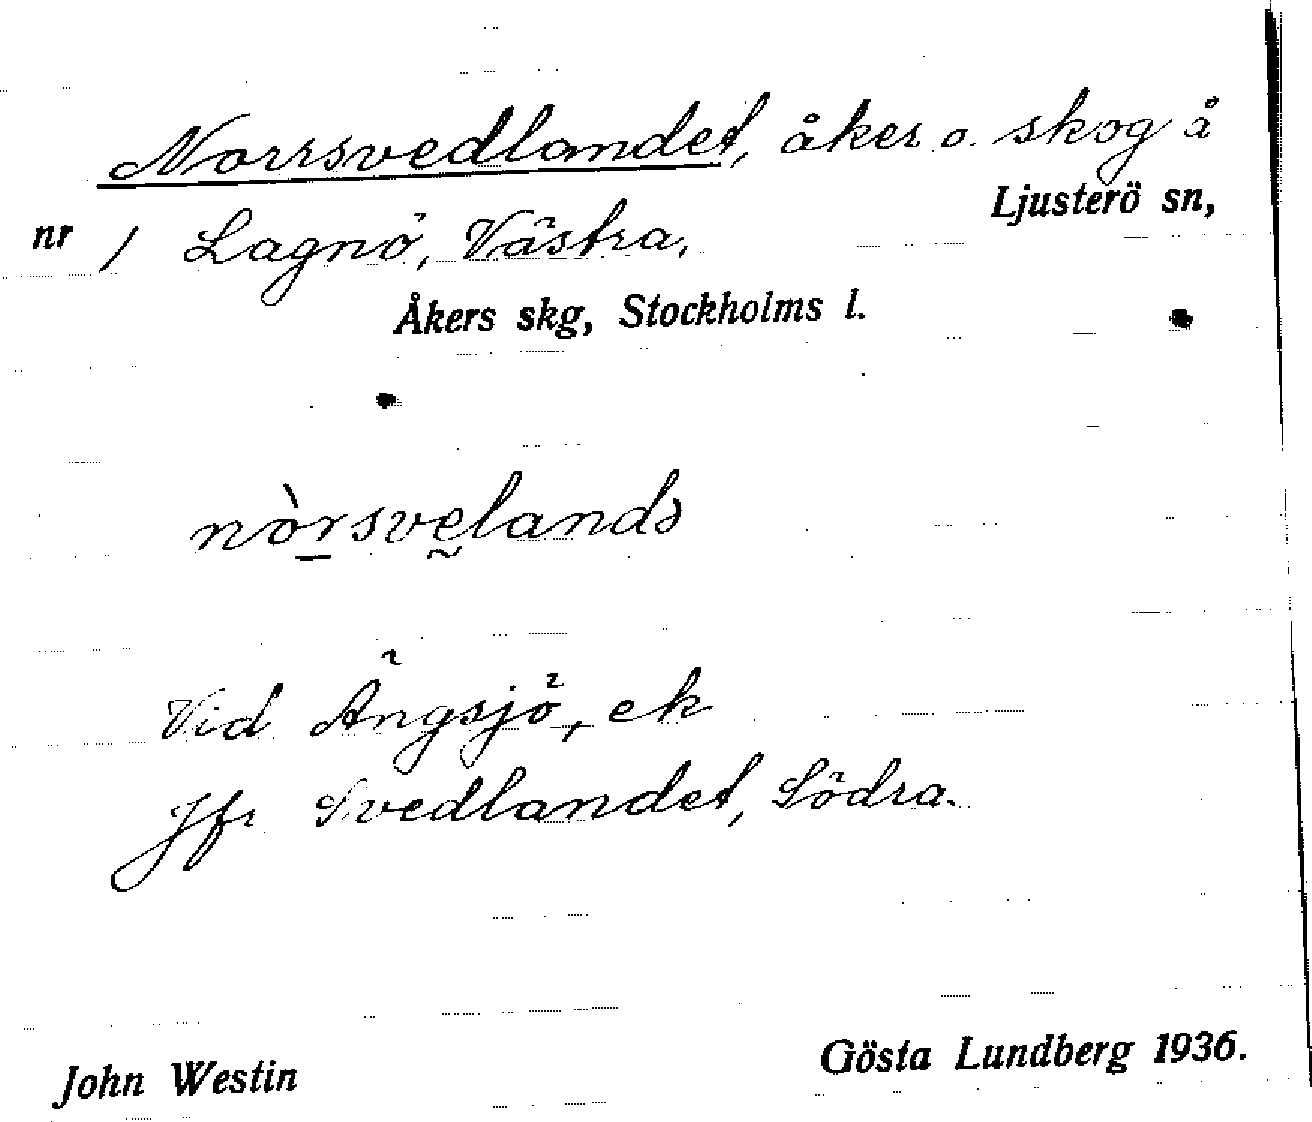 Norrsvedlandet, åker o. skog å
Ljusterö sn,
nr 1 Lagnö, Västra.
Åkers skg, Stockholms l.
nòrsvelandə
Vid Ängsjö, ek
Jfr Svedlandet, Södra.
John Westin
Gösta Lundberg 1936.